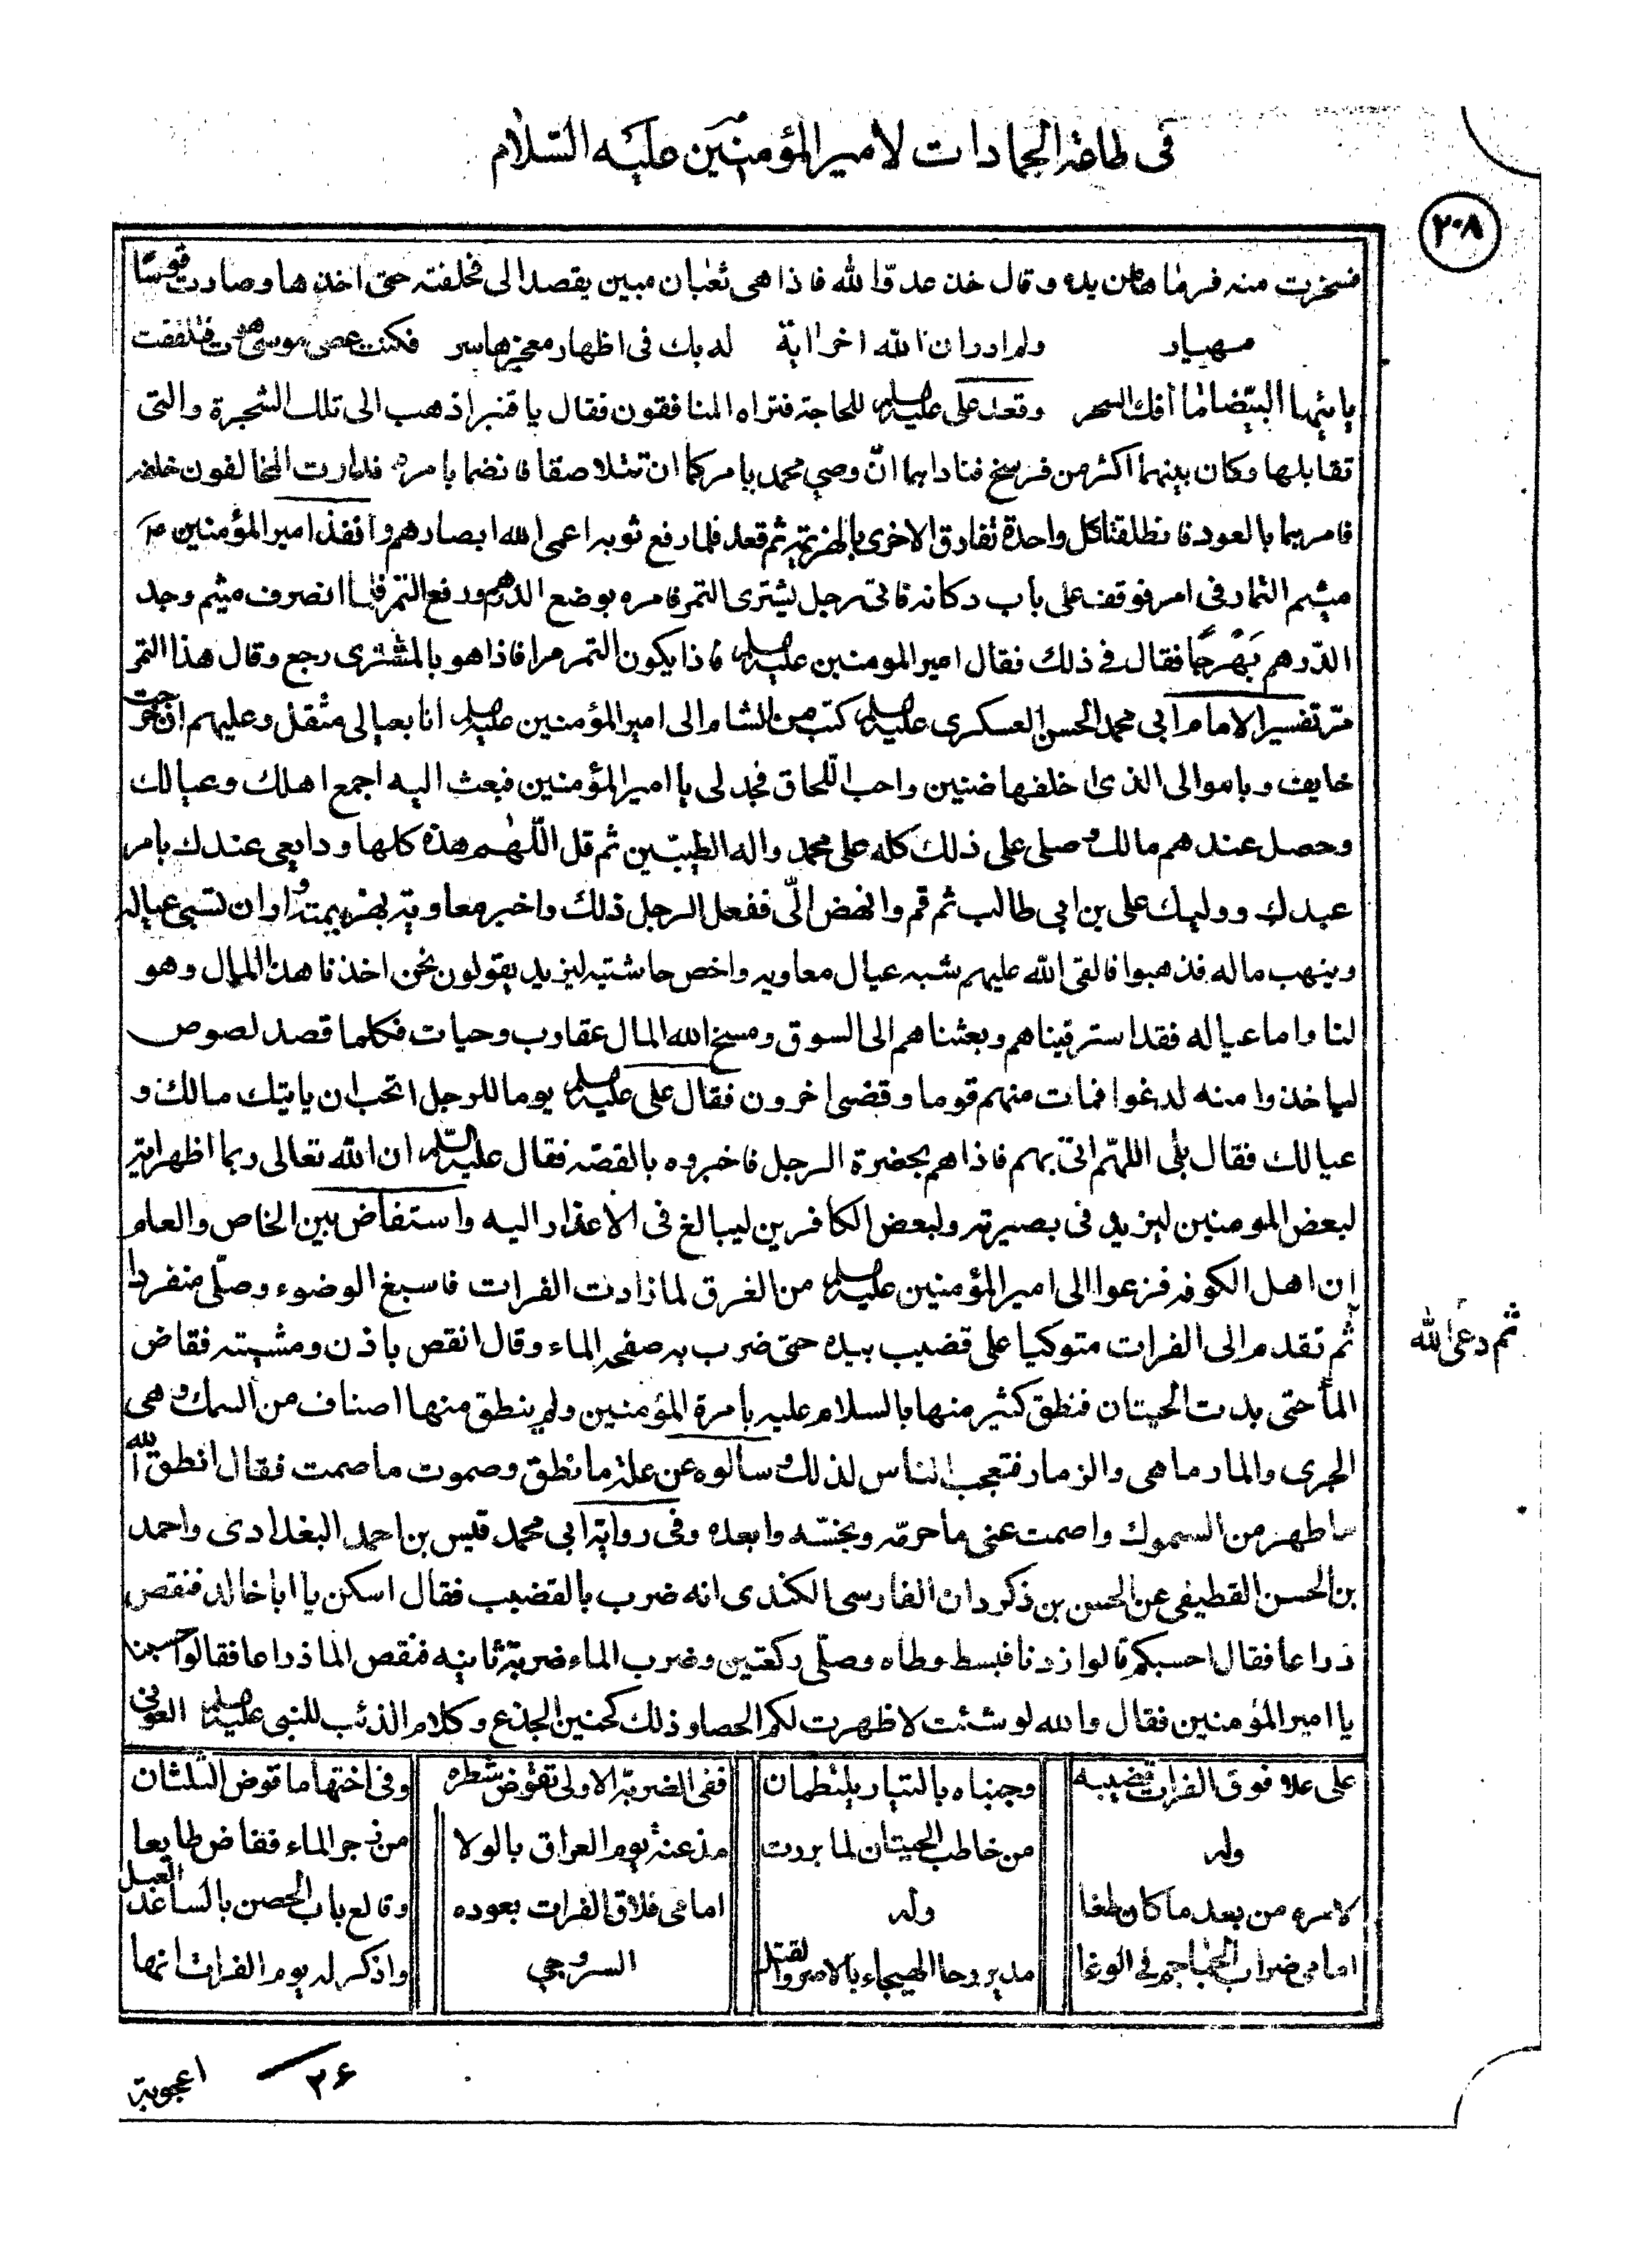 في طاعة الجمادات لامير المؤمنين عليه السلام
٢٠٨
فسخرت منه فرماها من يده وقال خذ عدوّ الله فاذا هي ثعبان مبين يقصد الى فحلفته حتى اخذها وصارت قوسًا
مهيار ولم ادر ان الله اخر اية لديك في اظهار معجزها سر فكنت عصى موسى هوت فتلقفت
بايتها البيضاء ما أفك السحر وقعد على عليه السلم للحاجة فتراه المنافقون فقال يا قنبر اذهب الى تلك الشجرة والتى
تقابلها وكان بينهما اكثر من فرسخ فناداهما انّ وصي محمد يامركما ان تتلاصقا فانضما بامره فدارت المخالفون خلفه
فامرهما بالعود فانطلقتا كل واحدة تفارق الاخرى بالهزيمة ثم قعد فلما رفع ثوبه اعمى الله ابصارهم وانفذ امير المؤمنين مر
ميثم التمار فى امر فوقف على باب دكانه فاتى رجل يشترى التمر فامره بوضع الدرهم ورفع التمر فلما انصرف ميثم وجد
الدّرهم بَهْرجًا فقال في ذلك فقال امير المومنين عليه السلم فاذا يكون التمر مرا فاذا هو بالمشترى رجع وقال هذا التمر
مرّ تفسير الامام ابي محمد الحسن العسكرى عليه السلم كتب من الشام الى امير المؤمنين عليه السلم انا بعيالى مثقل وعليهم ان خرجت
خايف وباموالى الذى اخلفها ضنين واحب اللحاق فجد لى يا امير المؤمنين فبعث اليه اجمع اهلك وعيالك
وحصل عندهم مالك وصلى على ذلك كله على محمد واله الطيبين ثم قل اللّهم هذه كلها ودايعى عندك بامر
عبدك ووليك على بن ابي طالب ثم قم وانهض الىّ ففعل الرجل ذلك واخبر معاوية بهزيمته واراد ان تسبى عياله
وينهب ماله فذهبوا فالقى الله عليهم شبه عيال معاويه واخص حاشتيه ليزيد يقولون نحن اخذنا هذا المال وهو
لنا واما عياله فقد استرقيناهم وبعثناهم الى السوق ومسخ الله المال عقارب وحيات فكلما قصد لصوص
لياخذوا منه لدغوا فمات منهم قوما وقضى اخرون فقال على عليه السلم يوما للرجل اتحب ان ياتيك مالك و
عيالك فقال بلى اللهم اتى بهم فاذاهم بحضرة الرجل فاخبروه بالقصّة فقال عليه السّلم ان الله تعالى ربما اظهر اية
لبعض المومنين ليزيد فى بصيرته ولبعض الكافرين ليبالغ فى الاعذار اليه واستفاض بين الخاص والعام
ان اهل الكوفه فزعوا الى امير المؤمنين عليه السلم من الغرق لما زادت الفرات فاسبغ الوضوء وصلّى منفردا
ثم دعى الله
ثم تقدم الى الفرات متوكيا على قضيب بيده حتى ضرب به صفحة الماء وقال انقص باذن ومشيته فغاض
الماء حتى بدت الحيتان فنطق كثير منها بالسلام عليه بامرة المؤمنين ولم ينطق منها اصناف من السمك وهى
الجرى والمار ماهى والزمار فتعجب الناس لذلك وسالوه عن علة ما نطق وصموت ما صمت فقال انطق الله
ما طهر من السموك واصمت عنى ما حرمّه ونجسّه وابعده وفى رواية ابي محمد قيس بن احمد البغدادى واحمد
بن الحسن القطيفى عن الحسن بن ذكردان الفارسى الكندى انه ضرب بالقضيب فقال اسكن يا ابا خالد فنقص
ذراعا فقال احسبكم قالوا زدنا فبسط وطاه وصلّى ركعتين وضرب الماء ضربة ثانيه فنقص الما ذراعا فقالوا حسبنا
يا امير المؤمنين فقال والله لو شئت لاظهرت لكم الحصا وذلك كحنين الجذع وكلام الذئب للنبى عليه السلم العونى
على علا فوق الفرات قضيبه وجنباه بالتيار يلتطمان ففى الضربة الاولى تقوض شطره وفى اختها ما قوض الثلثان
وله من خاطب الحيتان لما بردت مذ عنه يوم العراق بالولا من زجر الماء ففاض طايعا
لامره من بعد ما كان طغا وله امامى فلاق الفرات بعوده وقالع باب الحصن بالساعد العبل
امامى ضراب الجماجم في الوغا مدير رحا الهيجاء بالاسر والقتل السروجي واذكر له يوم الفرات انها
٢۶
اعجوبة